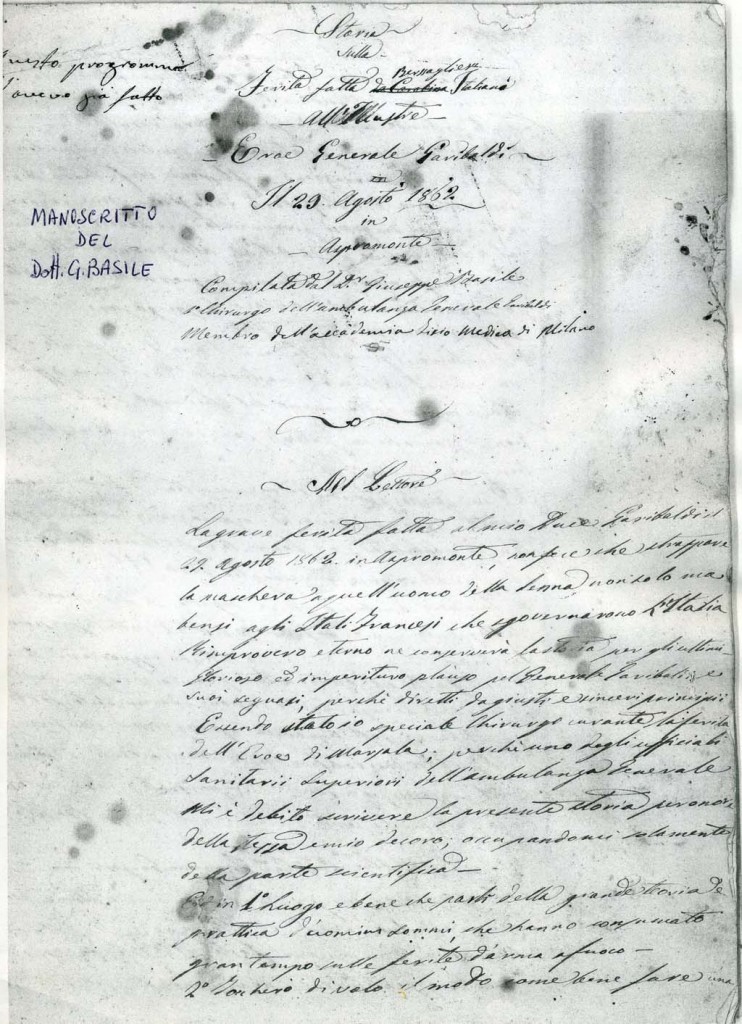 questo programma
l'avevo già fatto
Storia
sulla
Bersagliera
Ferita fatta da Carabina Italiana
All'Illustre
Eroe Generale Garibaldi
Il 29. Agosto 1862
in
Aspromonte
MANOSCRITTO
DEL
Dott. G. BASILE
Compilata dal Dr. Giuseppe Basile
Chirurgo dell'ambulanza Generale Garibaldi
Membro dell'accademia fisio medica di Milano
Al Lettore
La grave ferita fatta al mio Duce Garibaldi il
29. Agosto 1862. in Aspromonte, non fece che strappare
la maschera a quell'uomo della Senna, non solo ma
bensi agli Stati Francesi che sgovernarono l'Italia
Rimprovero eterno ne conserverà la storia per gli ultimi
Glorioso ed imperituro plauso pel Generale Garibaldi, e
suoi seguaci, perchè diretti da giusti e sinceri principii
Essendo stato io speciale Chirurgo curante la ferita
dell'Eroe di Marsala; perchè uno degli ufficiali
Sanitarii Superiori dell'ambulanza Generale
Mi è debito scrivere la presente storia per onore
della stessa e mio decoro; occupandomi solamente
della parte scientifica
in 1° Luogo è bene che parli della grande teoria e
prattica d'uomini sommi, che hanno consumato
gran tempo sulle ferite d'arma a fuoco
2° il modo come bene fare una